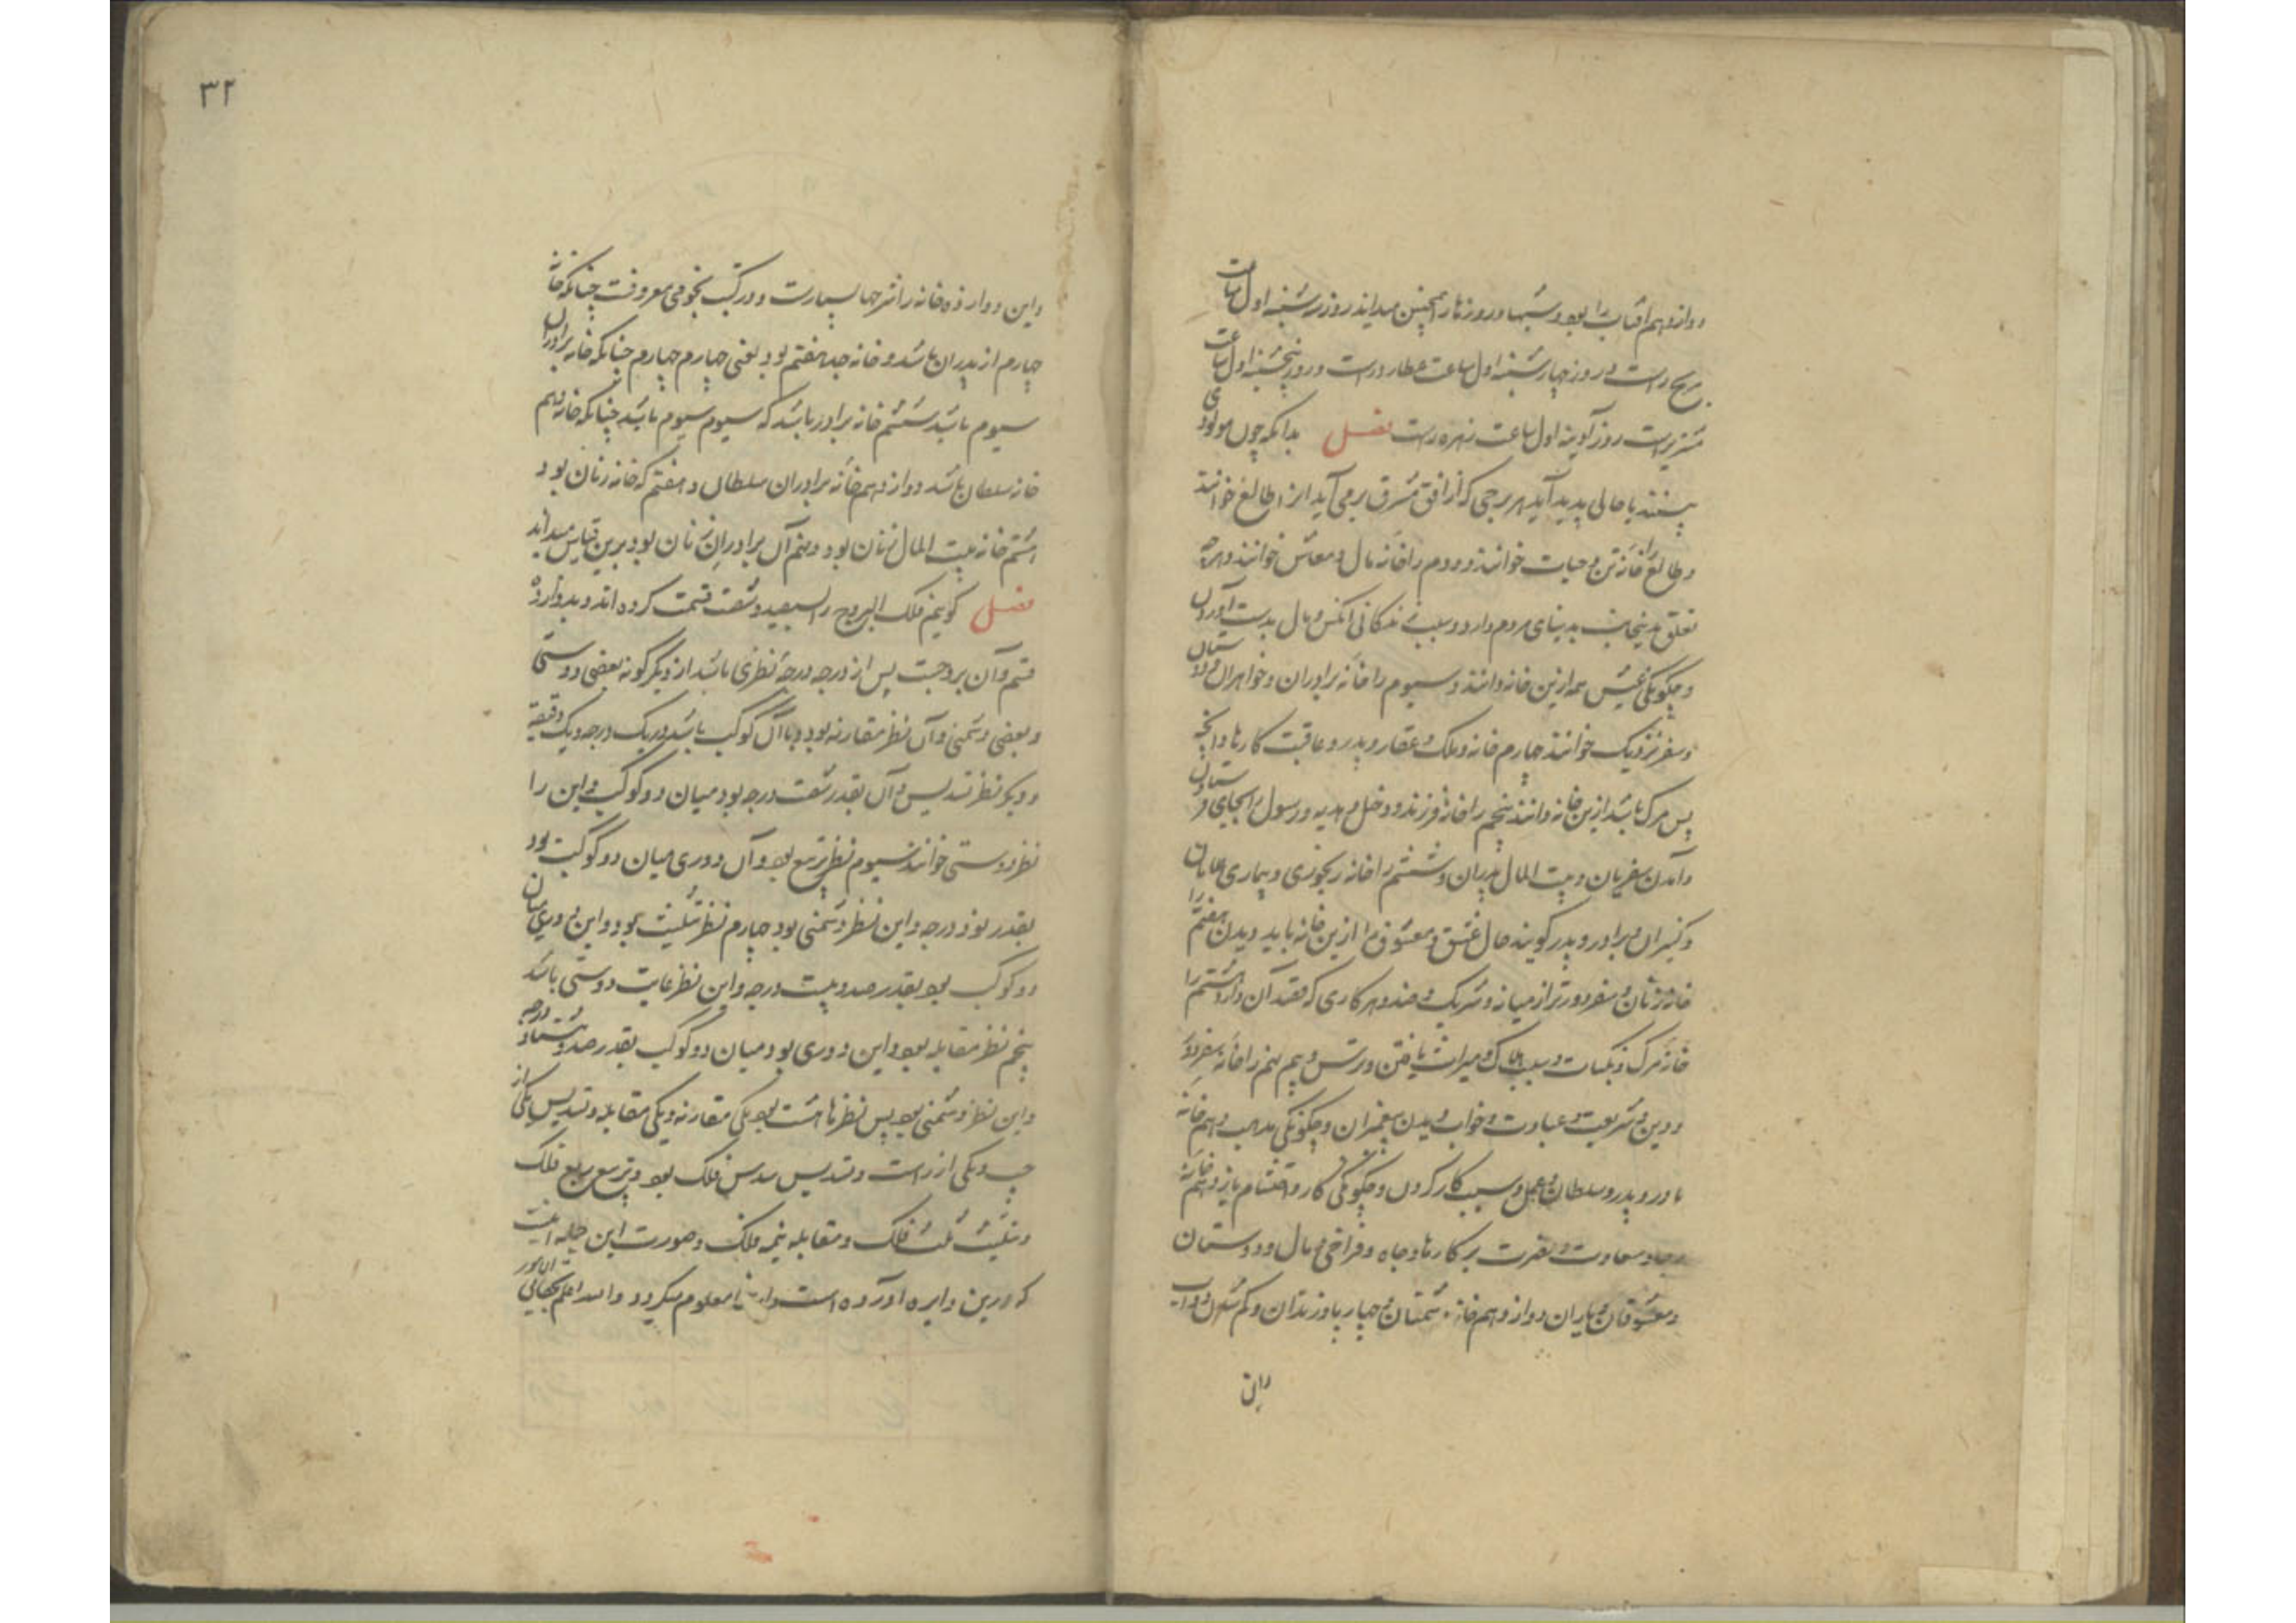 دوازدهم آفتاب را بود و شبها و روزها را همچنین میداند روز سه شنبه اول ساعت
مریخ راست و روز چهارشنبه اول ساعت عطارد راست و روز پنجشنبه اول ساعت
مشتریراست روز آدینه اول ساعت زهره راست فصل بدانکه چون مولودی
ببینند یا حالی پدید آید هر برجی که از افق مشرق برمی آید آنرا طالع خوانند
و طالع را خانه تن و حیات خوانند و دوم را خانه مال و معاش خوانند و هرچه
تعلق بدنیای مردم دارد و سبب زندگانی آنکس و مال بدست آوردن
و چگونگی عیش همه ازین خانه دانند و سیوم را خانه برادران و خواهران و دوستان
و سفر نزدیک خوانند چهارم خانه و ملک و عقار و پدر و عاقبت کارها و آنچه
پس مرگ باشد ازین خانه دانند پنجم را خانه فرزند و دخل و هدیه و رسول
و آمدن سفریان و بیت المال پدران و ششم را خانه رنجوری و بیماری
و کنیزان و برادر و پدر گویند حال عشق و معشوق را ازین خانه باید دیدن هفتم را
خانه زنان و سفر دورتر از میانه و شریک و ضد و هر کاری که قصد آن دارد هشتم را
خانه مرگ و نکبات و سبب هلاک و میراث یافتن و ترس و بیم نهم را خانه سفر دور
و دین و شریعت و عبادت و خواب دیدن پیغمبران و چگونگی مذهب دهم خانه
مادر و پدر و سلطان و عمل و سبب کار کردن و چگونگی کار و احتشام یازدهم خانه
رجا و سعادت و نصرت بر کارها و جاه و فراخی مال و دوستان
و معشوقان و یاران دوازدهم خانه دشمنان و چهارپا و زندان و غم
واین
۳۲
واین دوازده خانه را شرحها بسیارست و در کتب نجومی معروفست چنانکه خانه
چهارم از پدران باشد و خانه جد هفتم بود یعنی چهارم چهارم چنانکه خانه برادران
سیوم باشد ششم خانه برادر باشد که سیوم سیوم باشد چنانکه خانه دهم
خانه سلطان باشد دوازدهم خانه برادران سلطان و هفتم که خانه زنان بود
هشتم خانه بیت المال زنان بود و نهم آن برادران زنان بود برین قیاس میداند
فصل گوییم فلک البروج را بسیصد و شصت قسمت کرده اند و بدوازده
قسم و آن بروجست پس از درجه درجهٔ نظری باشد از دیگر گونه بعضی دوستی
و بعضی دشمنی و آن نظر مقارنه بود و با آن کوکب باشد در یک درجه و یک دقیقه
و دیگر نظر تسدیس و آن بقدر شصت درجه بود میان دو کوکب و این را
نظر دوستی خوانند سیوم نظر تربیع بود و آن دوری میان دو کوکب بود
بقدر نود درجه و این نظر دشمنی بود چهارم نظر تثلیث بود و این دوری میان
دو کوکب بود بقدر صد و بیست درجه و این نظر غایت دوستی باشد
پنجم نظر مقابله بود و این دوری بود میان دو کوکب بقدر صد و هشتاد درجه
و این نظر دشمنی بود پس نظرها هشت بود یکی مقارنه و یکی مقابله و تسدیس یکی از
چپ و یکی از راست و تسدیس سدس فلک بود و تربیع ربع فلک
و تثلیث ثلث فلک و مقابله نیمه فلک و صورت این جمله اینست
که درین دایره آورده است و ازینجا معلوم میگردد والله اعلم بحقایق الامور